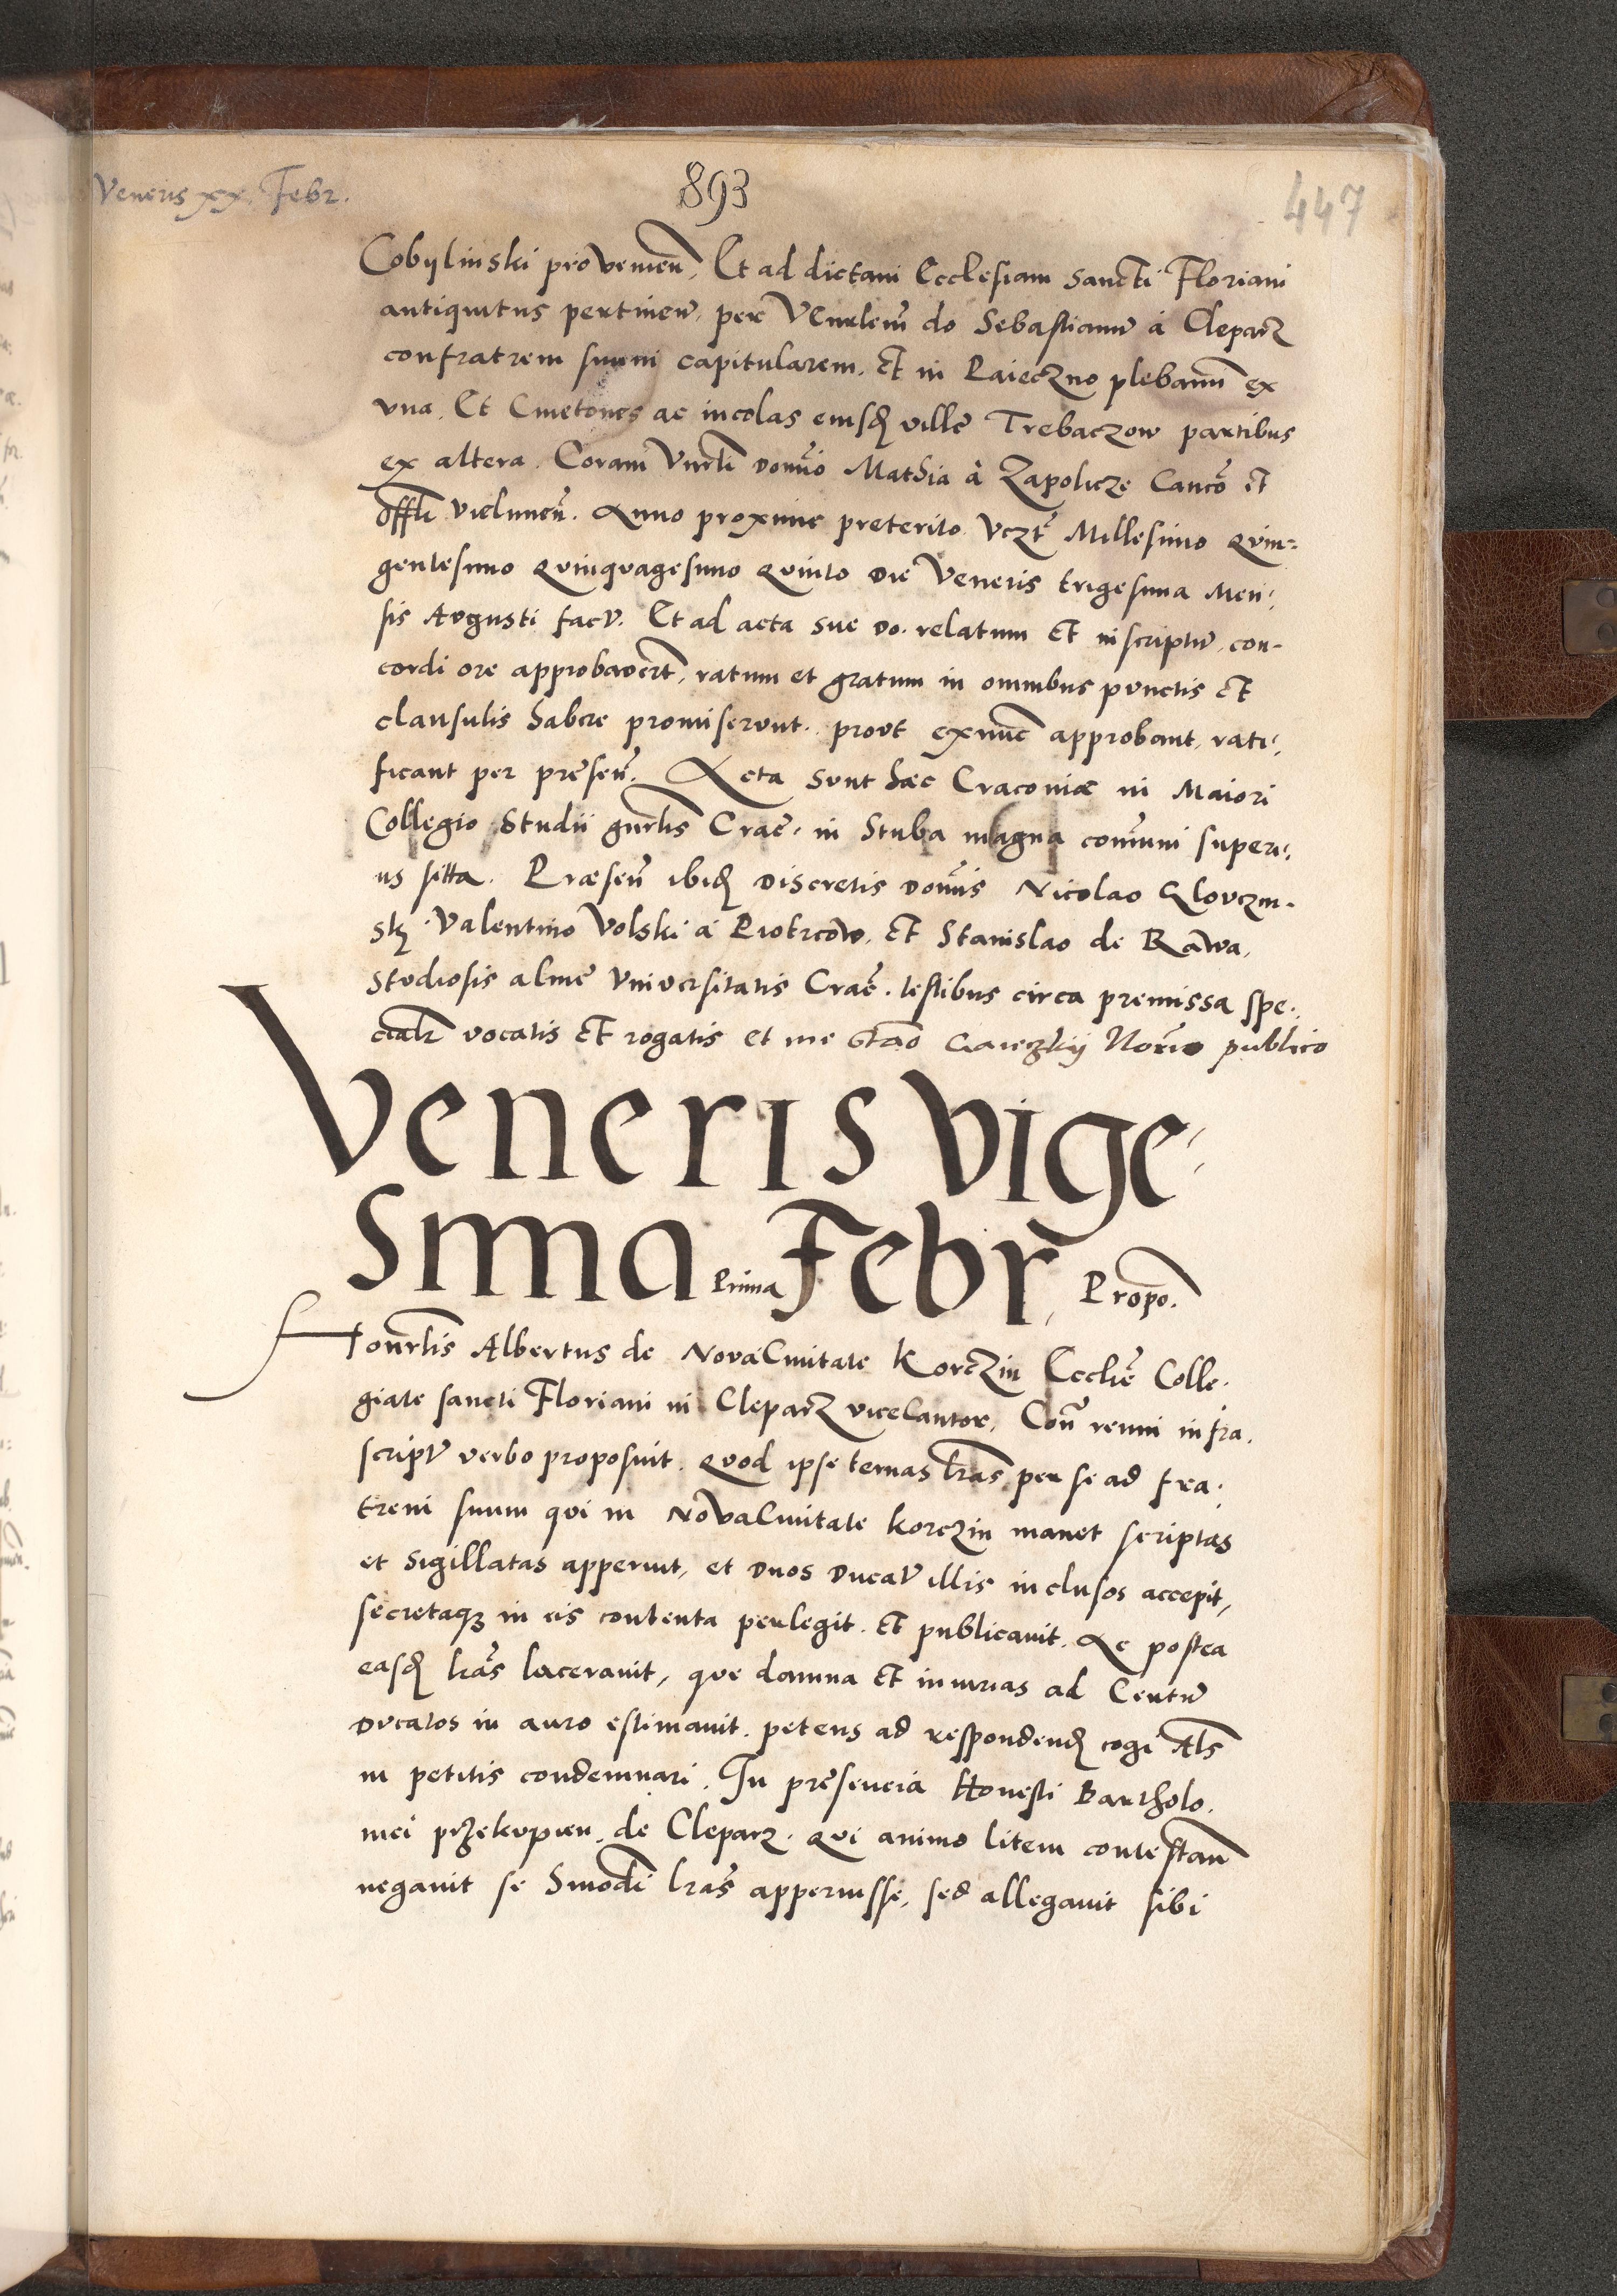 Veneris xx. Febr.
893
447
Cobylinski provenien̄, Et ad dictam Ecclesiam Sancti Floriani
antiquitus pertinen̄, per Venrlem̄ do Sebastianū á Cleparz
confratrem suum capitularem. et in Paieczno plebanū ex
vna. Et Cmetones ac incolas eiusd̄ ville Trebaczow partibus
ex altera. Coram Vnrli domīo Mathia à Zapolicze Canco et
offli vielunen̄. Anno proxime preterito Vczt Millesimo Qvin=
gentesimo Qvinqvagesimo Qvinto die Veneris trigesima Men:
sis Avgusti factū. Et ad acta sue do. relatum et inscriptū, con-
cordi ore approbavert̄, ratum et gratum in omnibus pvnctis et
clausulis habere promiservnt. provt exnūc approbant, rati:
ficant per presen̄. Acta svnt haec Cracoviae in Maiori
Collegio Studii gnrlis Crac̄. in Stuba magna com̄uni superi:
us sitta. Præsen̄ ibid̄ Discretis domīs Nicolao Klovczin.
sky. Valentino Volski á Piotrcow. et Stanislao de Rawa,
Stvdiosis alme Vniversitatis Crac̄. testibus circa premissa spe.
cialr vocatis et rogatis et me Stāo Gaieczkij Nor̄io publico
Veneris vige-
sima Febr̄,
Prima Propo.
Honrlis Albertus de Nova Civitate Korczin Ecclie Colle.
giate sancti Floriani in Cleparz viceCantor, Con̄ reum infra.
scriptū verbo proposuit. Qvod ipse ternas lrās per se ad fra.
trem suum qvi in Nova Civitate korczin manet scriptas
et sigillatas apperuit, et dvos dvcatū illis inclusos accepit,
secretaqz in eis contenta perlegit. et pvblicavit. Ac postea
easd̄ lrās laceravit, que damna et iniurias ad Centū
dvcatos in auro estimavit. petens ad respondend̄ cogi Als
in petitis condemnari. In presencia Honesti Bartholo.
mei przekvpien de Cleparz. Qvi animo litem contestan̄
negavit se hmodi lrās apperuisse, sed allegavit sibi